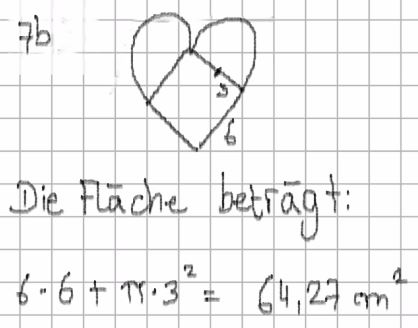 7b
3
6
Die Fläche beträgt:
6·6+π·3² = 64,27 cm²